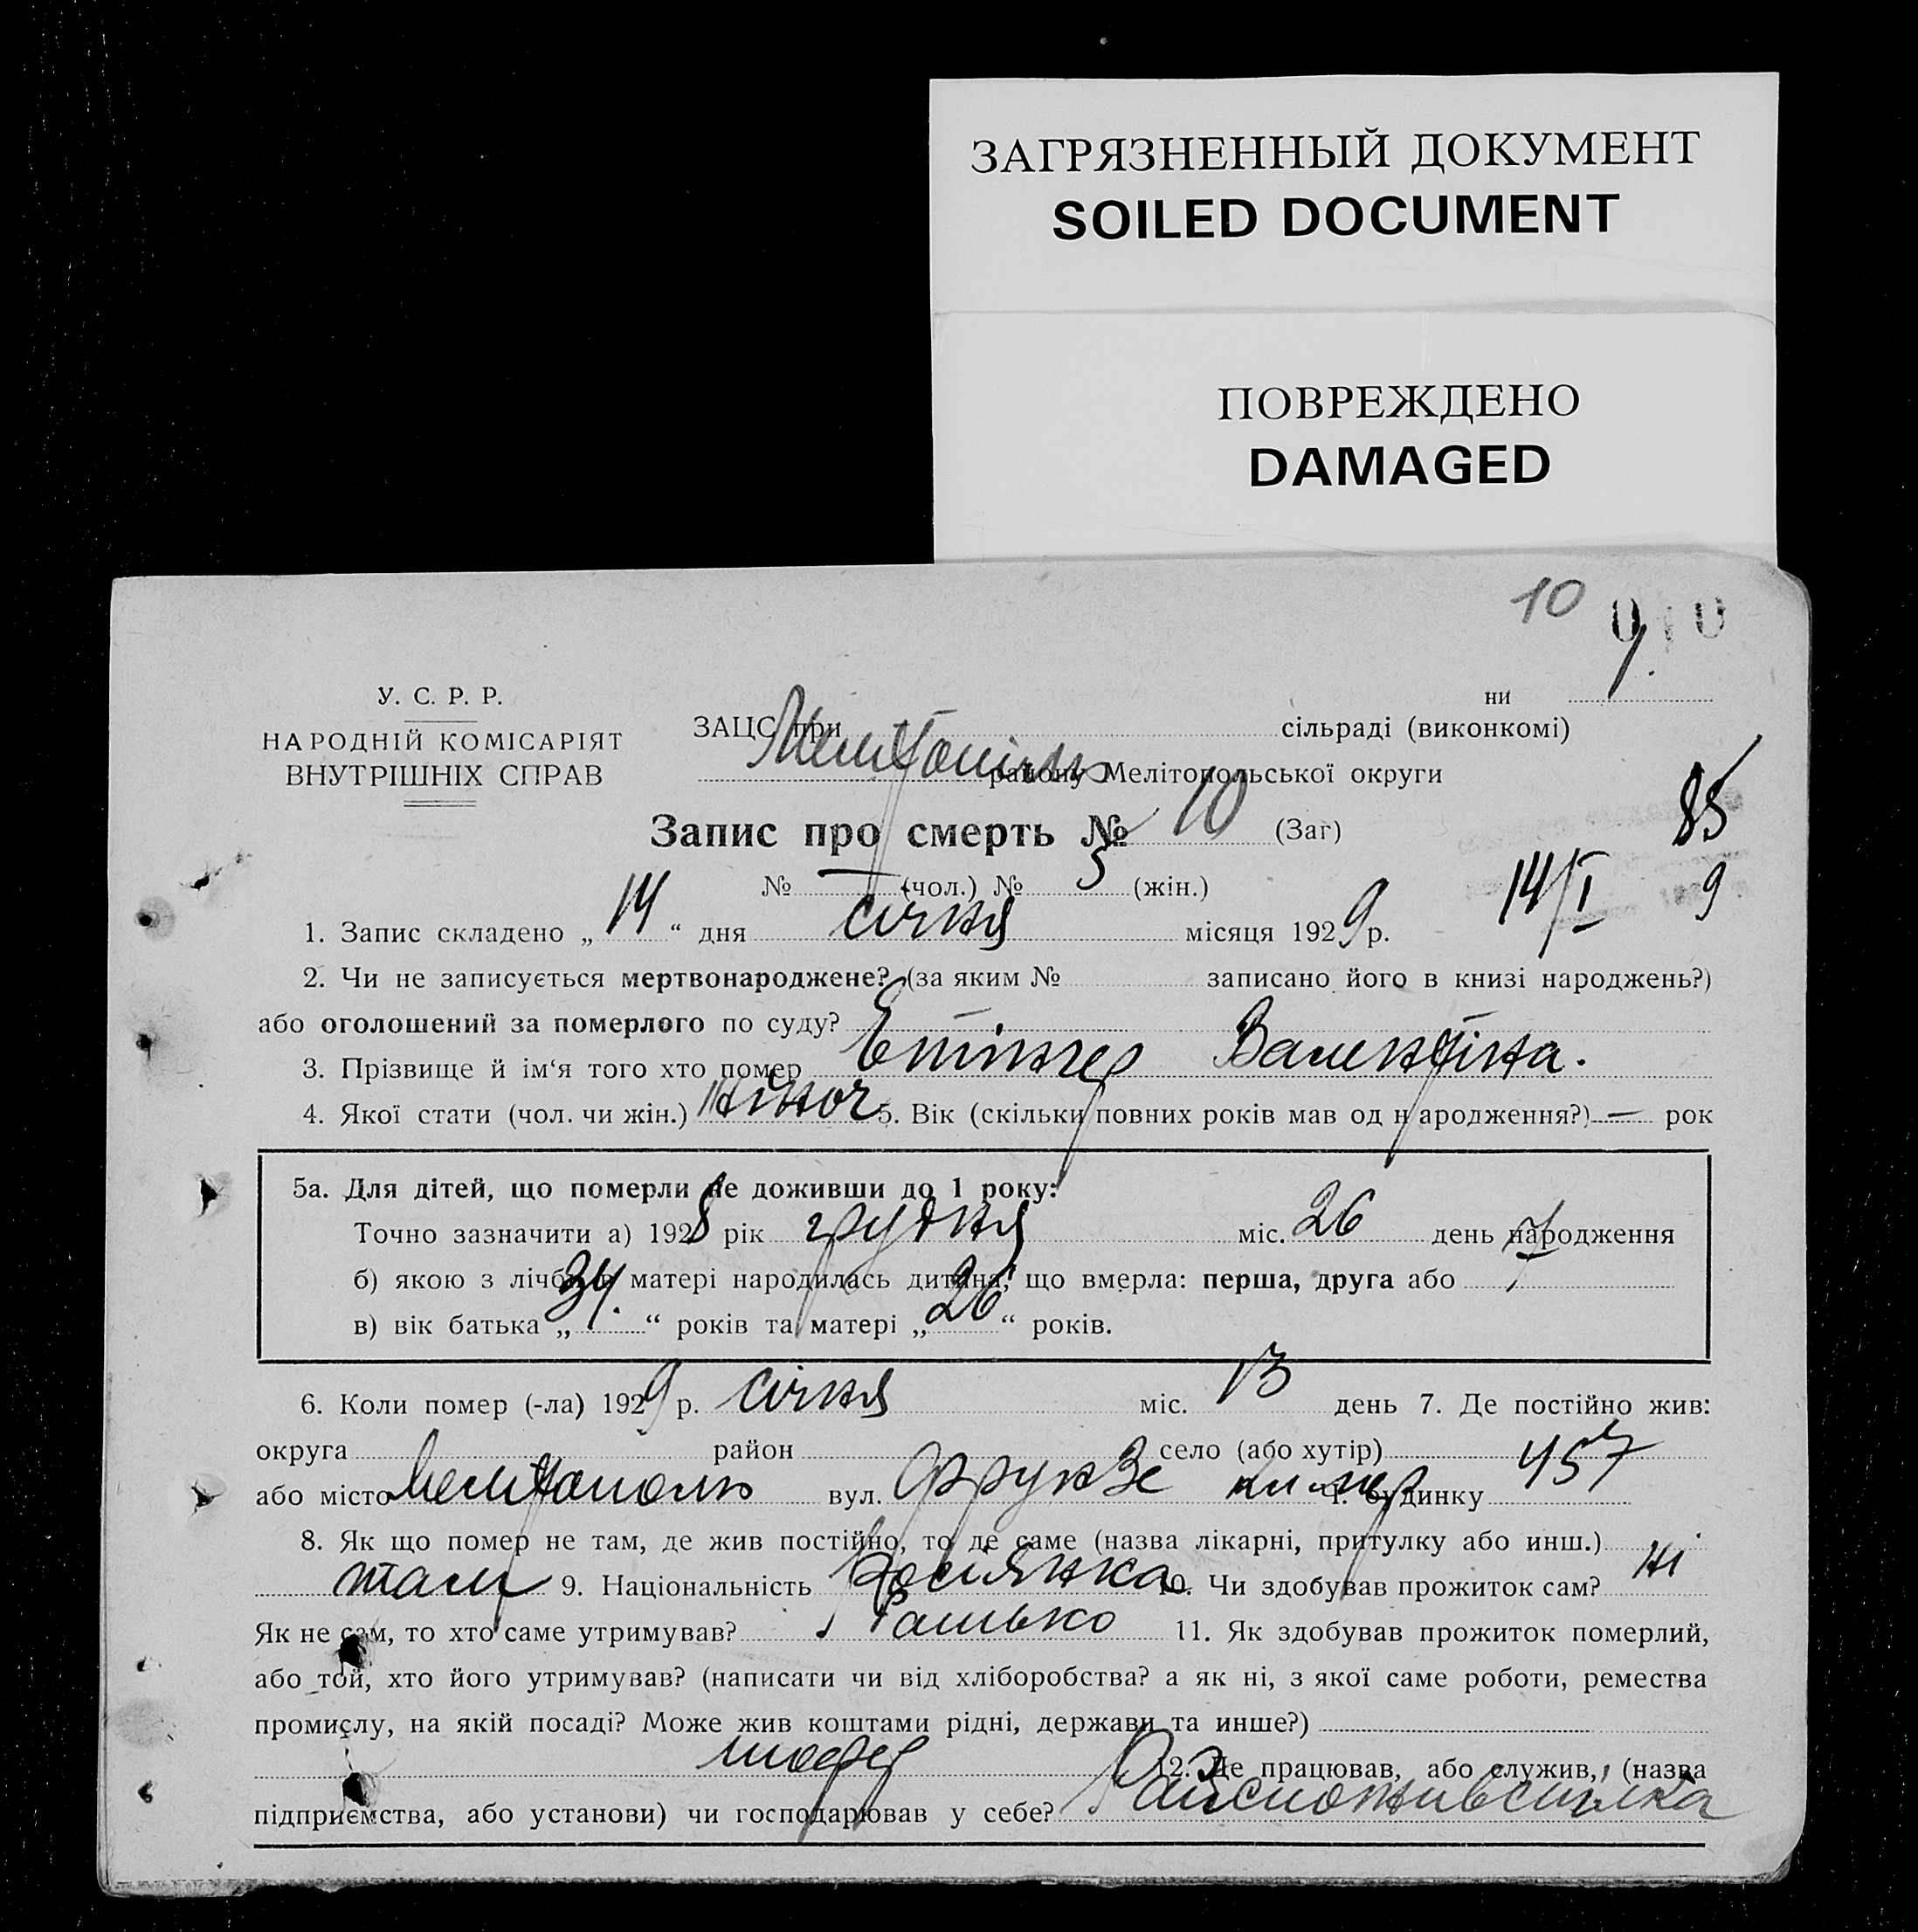 ЗАГРЯЗНЕННЫЙ ДОКУМЕНТ
SOILED DOCUMENT
ПОВРЕЖДЕНО
DAMAGED
10
У. С. Р. Р.
НАРОДНІЙ КОМІСАРІЯТ
ВНУТРІШНІХ СПРАВ
ЗАЦС при сільраді (виконкомі)
району Мелітопольської округи
85
Запис про смерть № 10 (Заг)
№ — (чол.) № 5 (жін.)
14/I 9
1. Запис складено „14“ дня січня місяця 1929 р.
2. Чи не записується мертвонароджене? (за яким № записано його в книзі народжень?)
або оголошений за померлого по суду?
3. Прізвище й ім‘я того хто помер Етінгер Валентіна.
4. Якої стати (чол. чи жін.) жіноч 5. Вік (скільки повних років мав од народження?) — рок
5а. Для дітей, що померли не доживши до 1 року:
Точно зазначити а) 1928 рік грудня міс. 26 день народження
б) якою з лічби в матері народилась дитина, що вмерла: перша, друга або
в) вік батька „34.“ років та матері „26“ років.
6. Коли помер (-ла) 1929 р. січня міс. 13 день 7. Де постійно жив:
округа район село (або хутір)
або місто Мелітополь вул. Фрунзе ч. будинку 457
8. Як що помер не там, де жив постійно, то де саме (назва лікарні, притулку або инш.)
там 9. Національність Росіянка 10. Чи здобував прожиток сам? ні
Як не сам, то хто саме утримував? Батько 11. Як здобував прожиток померлий,
або той, хто його утримував? (написати чи від хліборобства? а як ні, з якої саме роботи, ремества
промислу, на якій посаді? Може жив коштами рідні, держави та инше?)
шофер 12. Де працював, або служив, (назва
підприємства, або установи) чи господарював у себе? Райспоживспілка